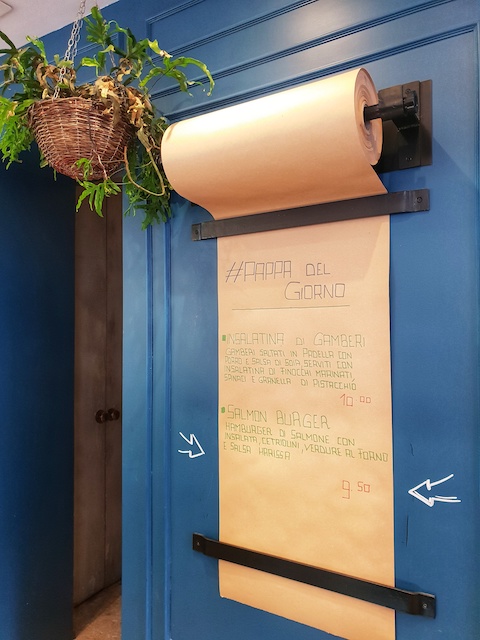 #PAPPA DEL
GIORNO
INSALATINA DI GAMBERI
GAMBERI SALTATI IN PADELLA CON
PORRO E SALSA DI SOIA, SERVITI CON
INSALATINA DI FINOCCHI MARINATI,
E GRANELLA DI PISTACCHIO
10 00
SALMON BURGER
HAMBURGER DI SALMONE CON
INSALATA, CETRIOLINI, VERDURE AL FORNO
E SALSA HARISSA
9 50